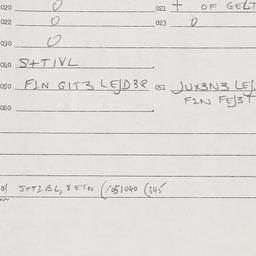 020 0 021 + OF GELT
022 0 023 0
030 0
040 S+TIVL
050 FIN GIT3 LEJD3R 051 JUX3N3 LEJ
FIN FEJ3T
060
01 S+TIBL, & ETN (/051040 (345